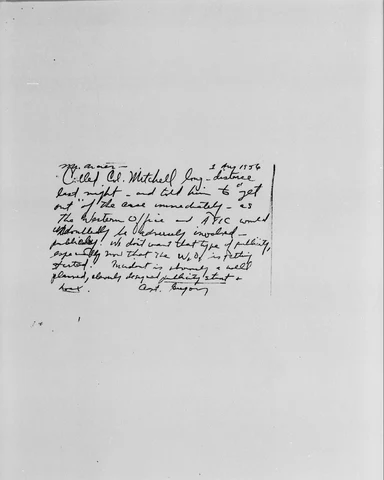 1 Aug 1956
Called Col. Mitchell long-distance
last night - and told him to "get
out" of the case immediately - as
The Western Office and ATIC would
undoubtedly be adversely involved -
publicity. We don't want that type of publicity,
especially now that the is getting
started. Incident is obviously a well
planned, cleverly designed publicity stunt &
hoax. Capt. Gregory